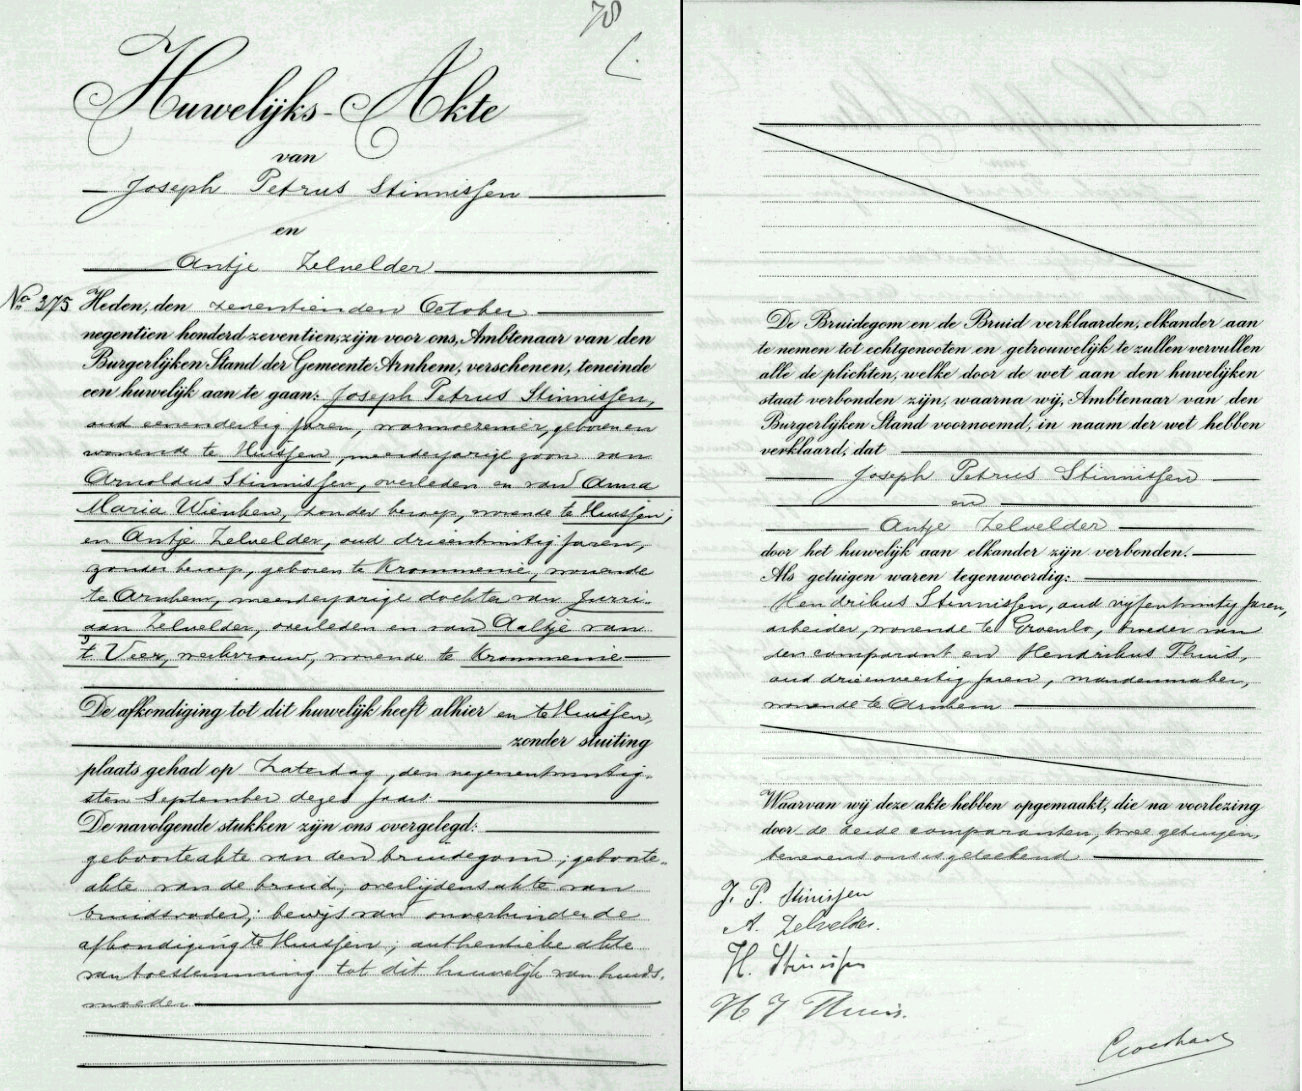 78
Huwelijks-Akte
van
Joseph Petrus Stinnissen
en
Antje Zelvelder
No. 375 Heden, den zeventienden October
negentien honderd zeventien, zijn voor ons, Ambtenaar van den
Burgerlijken Stand der Gemeente Arnhem, verschenen, teneinde
een huwelijk aan te gaan: Joseph Petrus Stinnissen,
oud eenendertig jaren, warmoezenier, geboren en
wonende te Huissen, meerderjarige zoon van
Arnoldus Stinnissen, overleden en van Anna
Maria Wienken, zonder beroep, wonende te Huissen;
en Antje Zelvelder, oud drieentwintig jaren,
zonder beroep, geboren te Krommenie, wonende
te Arnhem, meerderjarige dochter van Jurri-
aan Zelvelder, overleden en van Aaltje van
't Veer, werkvrouw, wonende te Krommenie
De afkondiging tot dit huwelijk heeft alhier en te Huissen,
zonder stuiting
plaats gehad op Zaterdag, den negenentwintig-
sten September dezes jaars
De navolgende stukken zijn ons overgelegd:
geboorteakte van den bruidegom; geboorte-
akte van de bruid; overlijdensakte van
bruidsvader; bewijs van onverhinderde
afkondiging te Huissen; authentieke akte
van toestemming tot dit huwelijk van bruids-
moeder
De Bruidegom en de Bruid verklaarden, elkander aan
te nemen tot echtgenooten en getrouwelijk te zullen vervullen
alle de plichten, welke door de wet aan den huwelijken
staat verbonden zijn, waarna wij, Ambtenaar van den
Burgerlijken Stand voornoemd, in naam der wet hebben
verklaard, dat
Joseph Petrus Stinnissen
en
Antje Zelvelder
door het huwelijk aan elkander zijn verbonden.
Als getuigen waren tegenwoordig:
Hendrikus Stinnissen, oud vijfentwintig jaren,
arbeider, wonende te Groenlo, broeder van
den comparant en Hendrikus Thuis,
oud drieenveertig jaren, mandenmaker,
wonende te Arnhem
Waarvan wij deze akte hebben opgemaakt, die na voorlezing
door de beide comparanten, twee getuigen,
benevens ons is geteekend
J. P. Stinissen
A. Zelvelder.
H. Stinissen
H J Thuis.